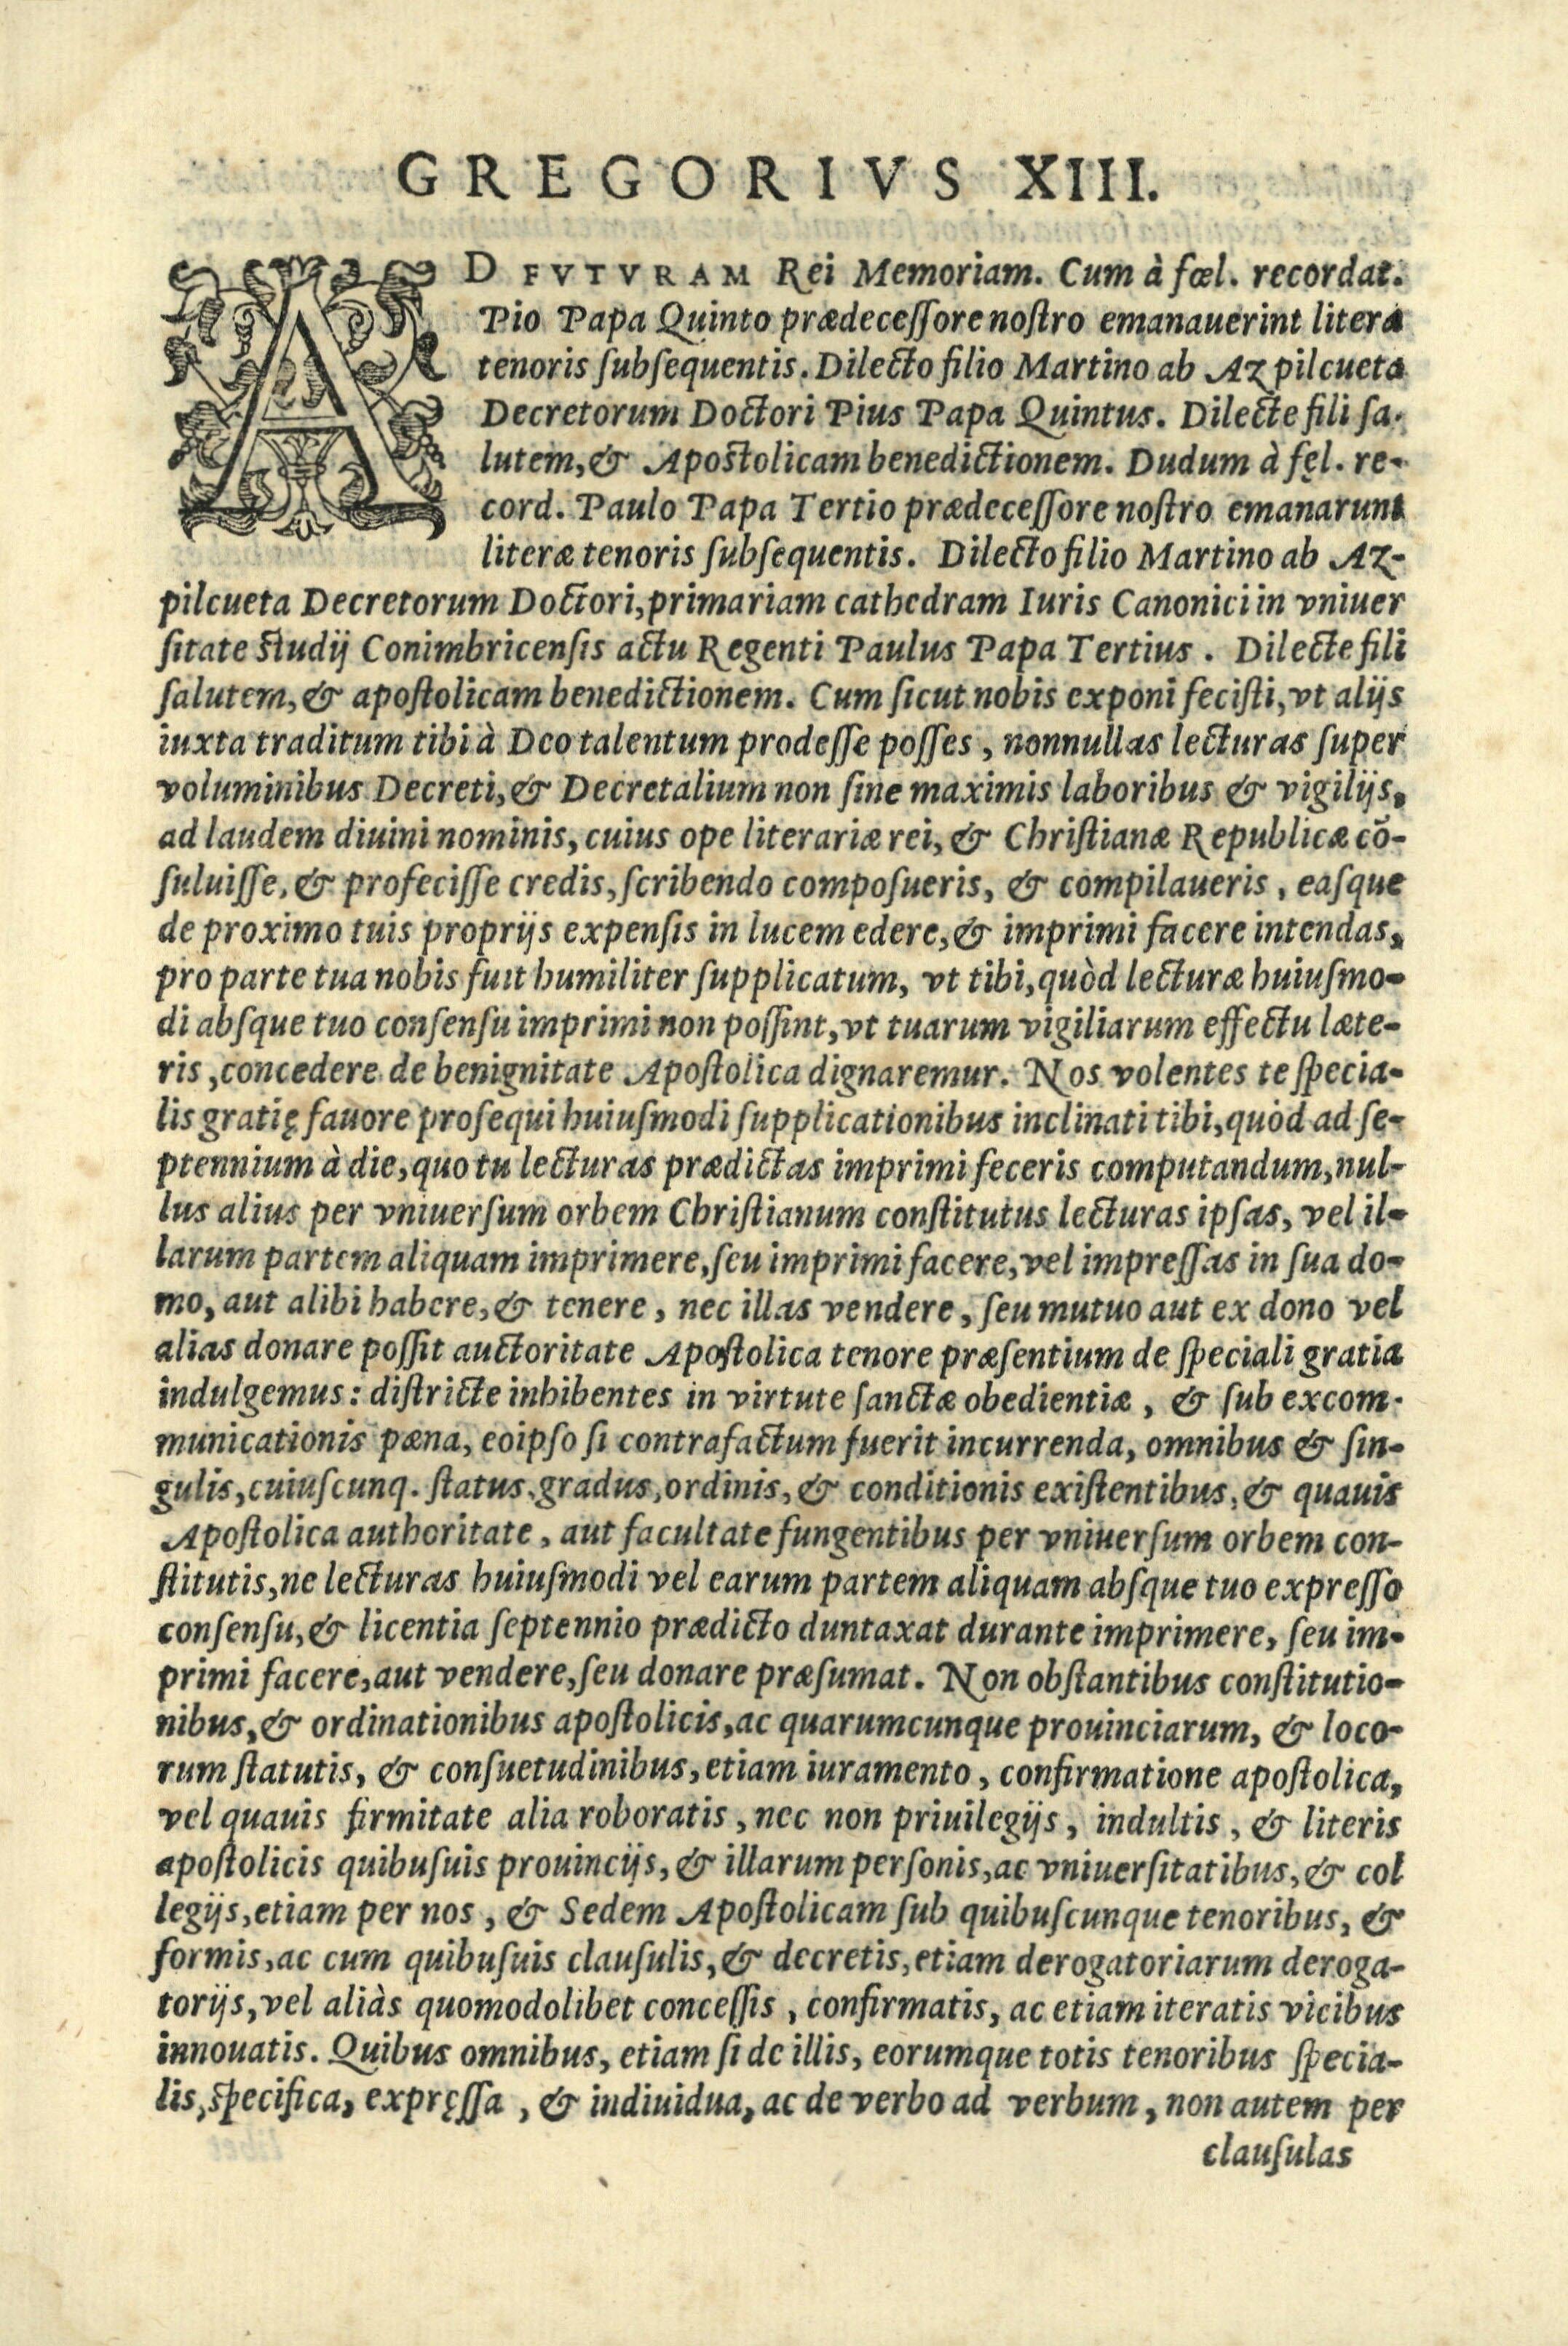 GREGORIVS XIII.
AD FVTVRAM Rei Memoriam. Cum à fœl. recordat.
Pio Papa Quinto prædeceſſore noſtro emanauerint litera
tenoris ſubſequentis. Dilecto filio Martino ab Azpilcueta
Decretorum Doctori Pius Papa Quintus. Dilecte fili ſa-
lutem, & Apoſtolicam benedictionem. Dudum à fęl. re-
cord. Paulo Papa Tertio prædeceſſore noſtro emanarunt
literæ tenoris ſubſequentis. Dilecto filio Martino ab Az-
pilcueta Decretorum Doctori, primariam cathedram Iuris Canonici in vniuer
ſitate ſtudij Conimbricenſis actu Regenti Paulus Papa Tertius. Dilecte fili
ſalutem, & apoſtolicam benedictionem. Cum ſicut nobis exponi feciſti, vt alijs
iuxta traditum tibi à Deo talentum prodeſſe poſſes, nonnullas lecturas ſuper
voluminibus Decreti, & Decretalium non ſine maximis laboribus & vigilijs,
ad laudem diuini nominis, cuius ope literariæ rei, & Chriſtianæ Republicæ cō-
ſuluiſſe, & profeciſſe credis, ſcribendo compoſueris, & compilaueris, eaſque
de proximo tuis proprijs expenſis in lucem edere, & imprimi facere intendas,
pro parte tua nobis fuit humiliter ſupplicatum, vt tibi, quòd lecturæ huiuſmo-
di abſque tuo conſenſu imprimi non poſſint, vt tuarum vigiliarum effectu læte-
ris, concedere de benignitate Apoſtolica dignaremur. Nos volentes te ſpecia-
lis gratię fauore proſequi huiuſmodi ſupplicationibus inclinati tibi, quòd ad ſe-
ptennium à die, quo tu lecturas prædictas imprimi feceris computandum, nul-
lus alius per vniuerſum orbem Chriſtianum conſtitutus lecturas ipſas, vel il-
larum partem aliquam imprimere, ſeu imprimi facere, vel impreſſas in ſua do-
mo, aut alibi habere, & tenere, nec illas vendere, ſeu mutuo aut ex dono vel
alias donare poſſit auctoritate Apoſtolica tenore præſentium de ſpeciali gratia
indulgemus: diſtricte inhibentes in virtute ſanctæ obedientiæ, & ſub excom-
municationis pæna, eoipſo ſi contrafactum fuerit incurrenda, omnibus & ſin-
gulis, cuiuſcunq. ſtatus, gradus, ordinis, & conditionis exiſtentibus, & quauis
Apoſtolica authoritate, aut facultate fungentibus per vniuerſum orbem con-
ſtitutis, ne lecturas huiuſmodi vel earum partem aliquam abſque tuo expreſſo
conſenſu, & licentia ſeptennio prædicto duntaxat durante imprimere, ſeu im-
primi facere, aut vendere, ſeu donare præſumat. Non obſtantibus conſtitutio-
nibus, & ordinationibus apoſtolicis, ac quarumcunque prouinciarum, & loco-
rum ſtatutis, & conſuetudinibus, etiam iuramento, confirmatione apoſtolica,
vel quauis firmitate alia roboratis, nec non priuilegijs, indultis, & literis
apoſtolicis quibuſuis prouincijs, & illarum perſonis, ac vniuerſitatibus, & col
legijs, etiam per nos, & Sedem Apoſtolicam ſub quibuſcunque tenoribus, &
formis, ac cum quibuſuis clauſulis, & decretis, etiam derogatoriarum deroga-
torijs, vel aliàs quomodolibet conceſſis, confirmatis, ac etiam iteratis vicibus
innouatis. Quibus omnibus, etiam ſi de illis, eorumque totis tenoribus ſpecia-
lis, ſpecifica, expręſſa, & indiuidua, ac de verbo ad verbum, non autem per
clauſulas